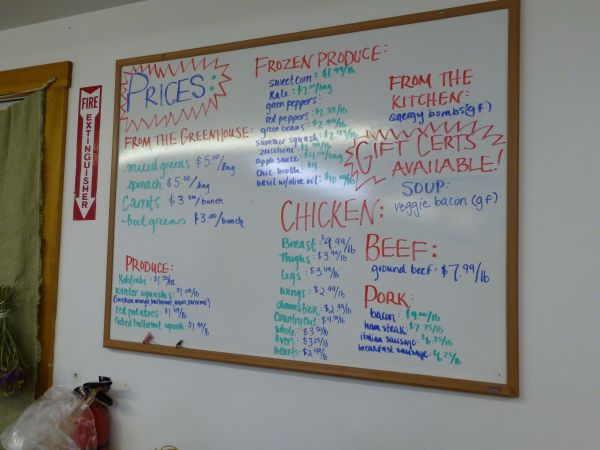 FIRE
EXTINGUISHER
PRICES:
FROM THE GREENHOUSE:
mixed greens $5.00/bag
spinach $5.00/bag
Carrots $3.00/bunch
beet greens $3.00/bunch
PRODUCE:
Kohlrabi:
winter squashes:
red potatoes: $1.49/lb
cubed butternut squash: $1.99/lb
FROZEN PRODUCE:
sweet corn: $1.99/lb
Kale: /bag
green peppers:
red peppers: /lb
green beans: $2.99/lb
summer squash: $2.99/lb
zucchini:
apple sauce:
chic. broth:
basil w/olive oil:
FROM THE
KITCHEN:
energy bombs(gf)
GIFT CERTS
AVAILABLE!
SOUP:
veggie bacon (gf)
CHICKEN:
Breast: $9.99/lb
Thighs: $3.99/lb
Legs: $3.49/lb
wings: $2.99/lb
drumstick: $2.99/lb
Country Cut: /lb
whole: $3.50/lb
livers: $3.25/lb
hearts: /lb
BEEF:
ground beef: $7.99/lb
PORK:
bacon: $9.00/lb
ham steak: $7.75/lb
italian sausage: $6.25/lb
breakfast sausage: $6.25/lb